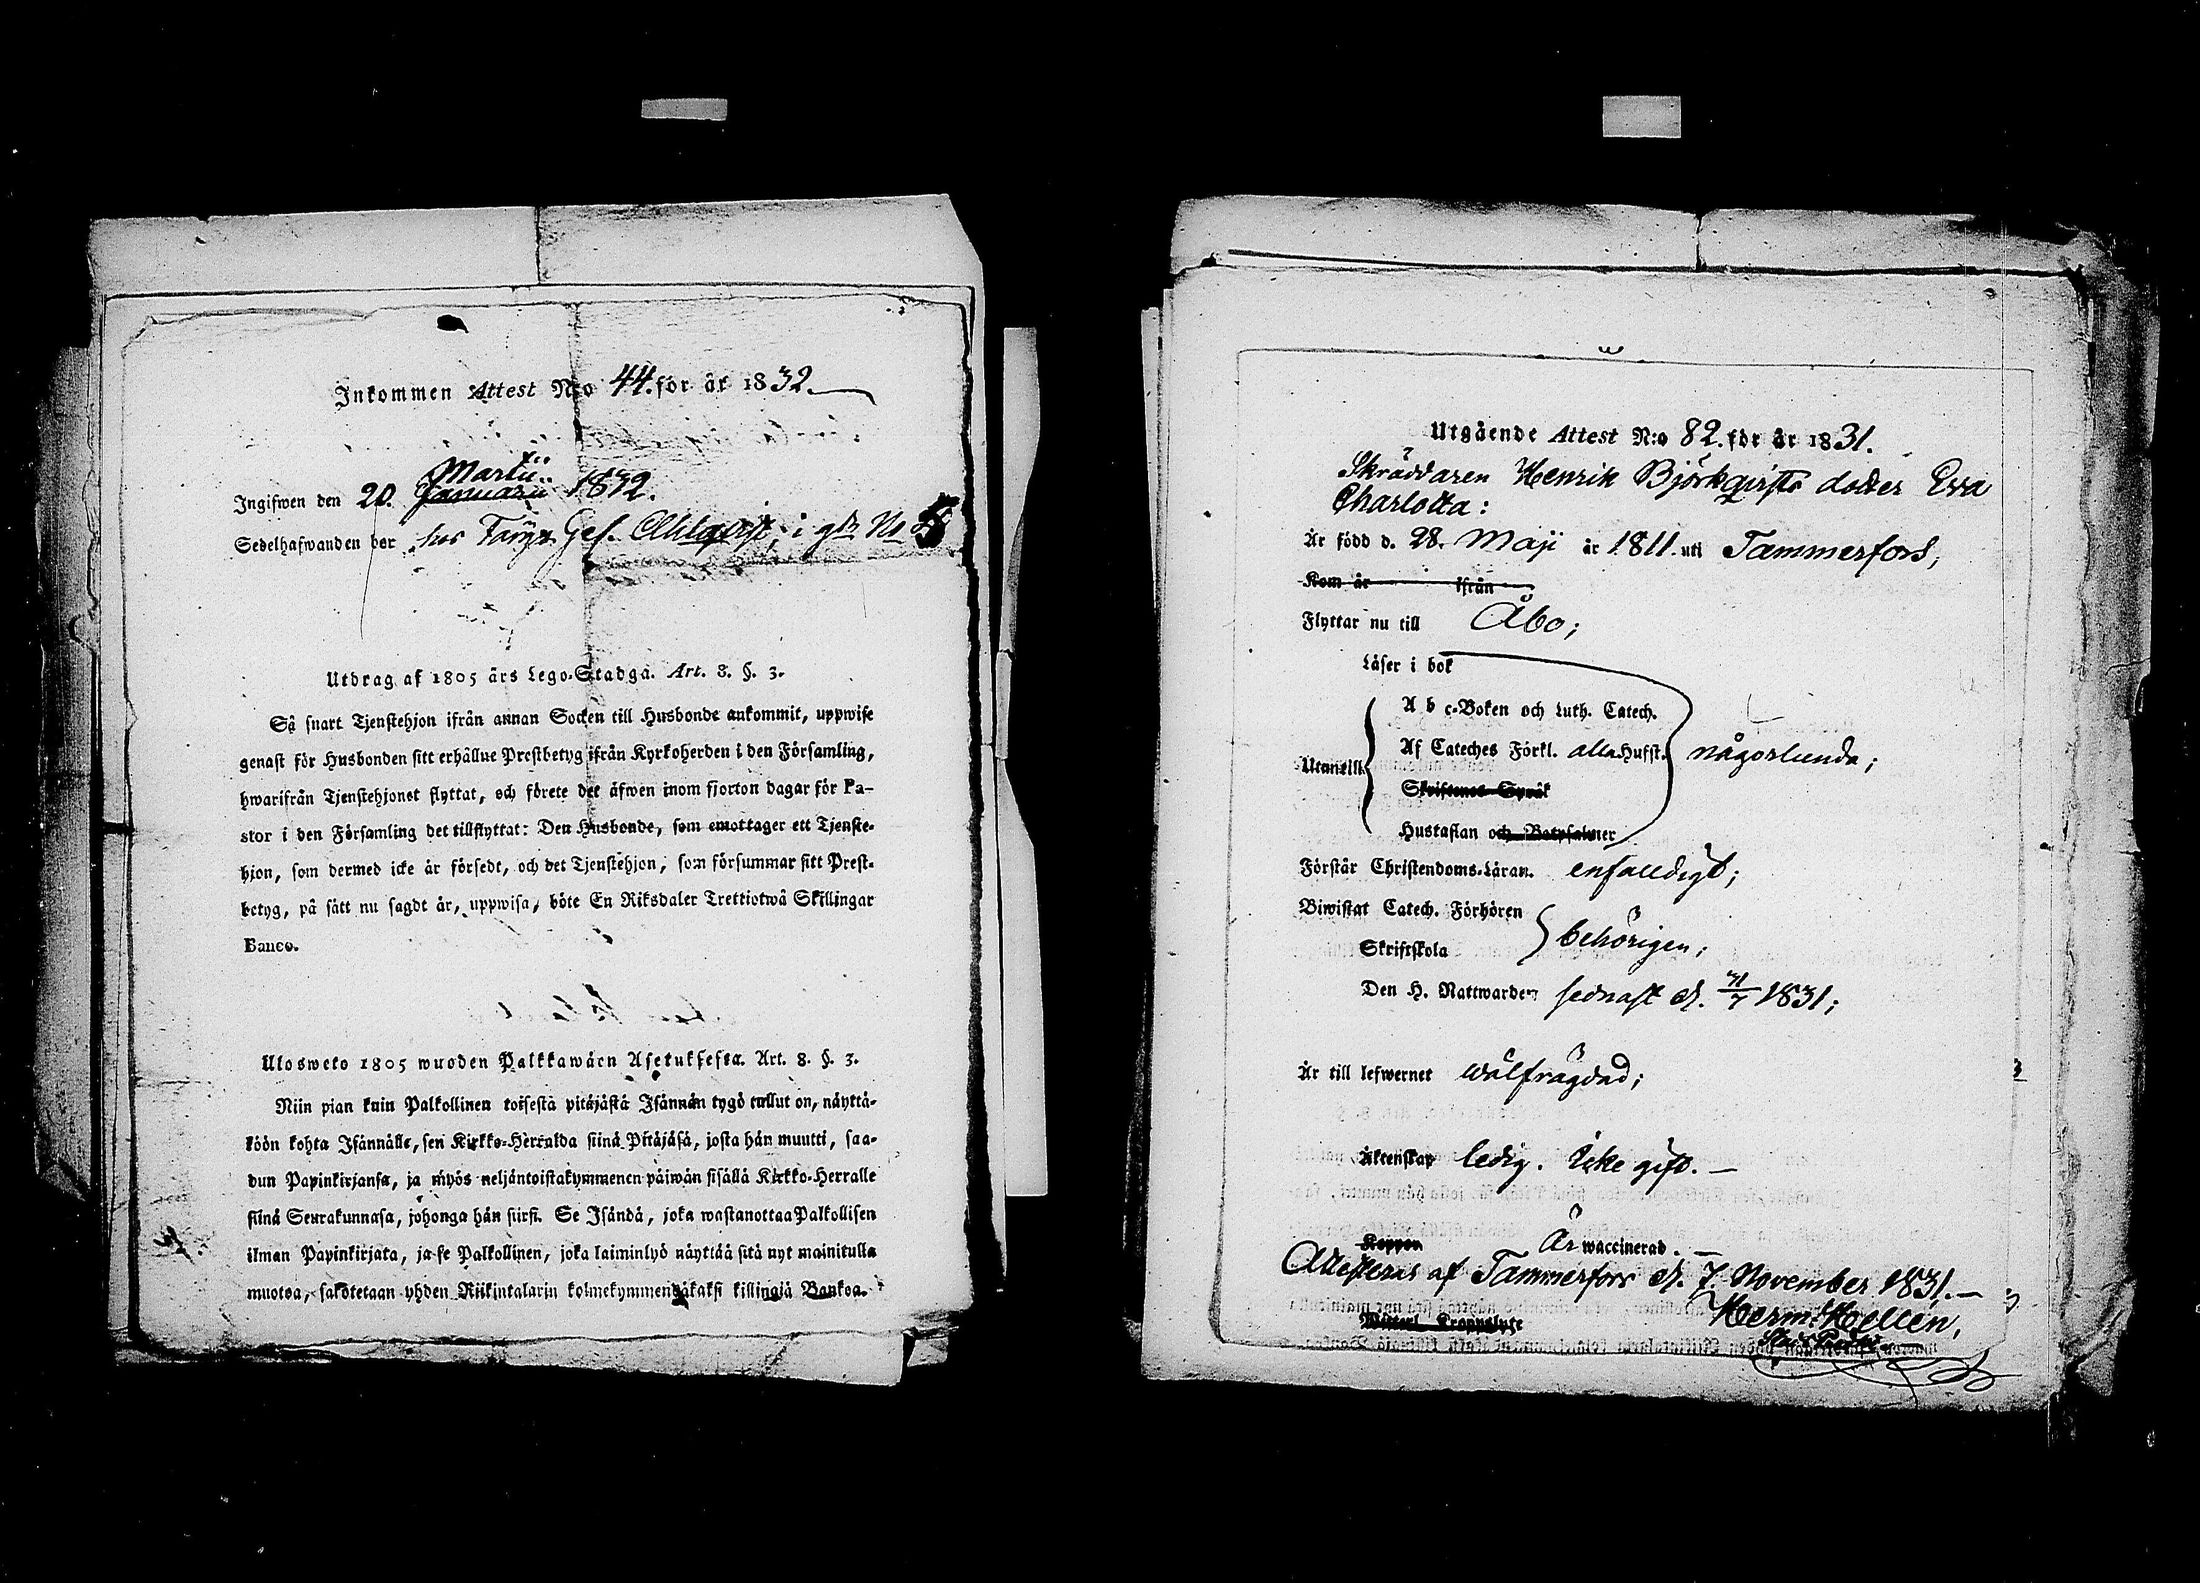 Inkommen Attest N:o 44. för år 1832.
Martii
Ingifwen den 20. Januarii 1832.
Sedelhafwanden bor hos Ges. Ahlqvist, i gdn No
Utdrag af 1805 års Lego-Stadga. Art. 8. §. 3.
Så snart Tjenstehjon ifrån annan Socken till Husbonde ankommit, uppwise
genast för Husbonden sitt erhållne Prestbetyg ifrån Kyrkoherden i den Församling,
hwarifrån Tjenstehjonet flyttat, och förete det äfwen inom fjorton dagar för Pa-
stor i den Församling det tillflyttat: Den Husbonde, som emottager ett Tjenste-
hjon, som dermed icke är försedt, och det Tjenstehjon, som försummar sitt Prest-
betyg, på sätt nu sagdt är, uppwisa, böte En Riksdaler Trettiotwå Skillingar
Banco.
Ulosweto 1805 wuoden Palkkawäen Asetuksesta. Art. 8. §. 3.
Niin pian kuin Palkollinen toisesta pitäjästä Isännän tygö tullut on, näyttä-
köön kohta Isännälle, sen Kirkko-Herralda siinä Pitäjäsä, josta hän muutti, saa-
dun Papinkirjansa, ja myös neljäntoistakymmenen päiwän sisällä Kirkko-Herralle
siinä Seurakunnasa, johonga hän siirsi. Se Isändä, joka wastanottaa Palkollisen
ilman Papinkirjata, ja se Palkollinen, joka laiminlyö näyttää sitä nyt mainitulla
muotoa, sakotetaan yhden Riikintalarin kolmekymmendäkaksi killingiä Bankoa.
Utgående Attest N:o 82. för år 1831.
Skräddaren Henrik Björkqvists dotter Eva
Charlotta:
Är född d. 28. Maji år 1811. uti Tammerfors,
Kom år ifrån
Flyttar nu till Åbo;
Läser i bok
A b c-Boken och Luth. Catech.
Utantill Af Cateches Förkl. alla Hufst. någorlunda;
Skriftenes Språk
Hustaflan och Botpsalmer
Förstår Christendoms-Läran. enfalldigt;
Biwistat Catech. Förhören
Skriftskola behörigen;
Den H. Nattwarden sednast d. 31/7 1831;
Är till lefwernet wälfrägdad;
Äktenskap ledig. Icke gift. —
Koppor Är waccinerad. —
Attesteras af Tammerfors d. 7. November 1831. —
Witterl. Kroppslyte Herm: Hellén,